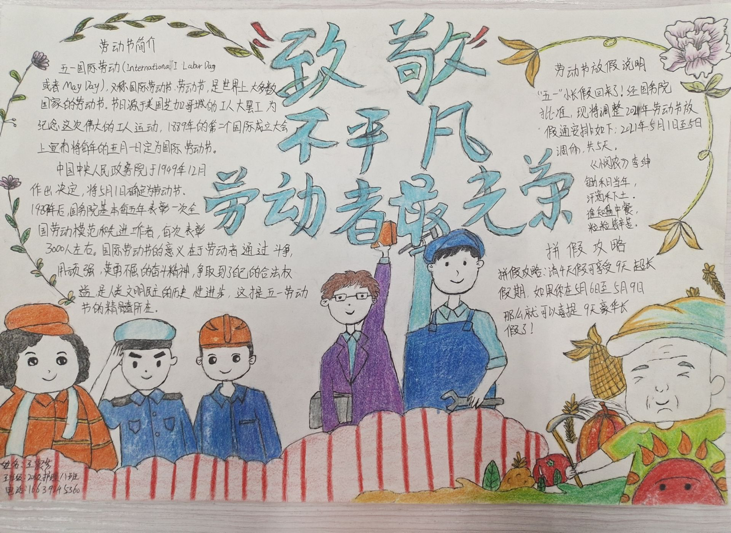 "致敬"
不平凡
劳动者最光荣
劳动节简介
五一国际劳动(International Labor Day
或者May Day),又称国际劳动节、劳动节,是世界上大多数
国家的劳动节。节日源于美国芝加哥城的工人大罢工,为
纪念这次伟大的工人运动,1889年的第二个国际成立大会
上宣布将每年的五月一日定为国际劳动节。
中国中央人民政务院于1949年12月
作出决定,将5月1日确定为劳动节。
1989年后,国务院基本每五年表彰一次全
国劳动模范和先进工作者,每次表彰
3000人左右。国际劳动节的意义在于劳动者通过斗争,
用顽强、英勇不屈的奋斗精神,争取到了自己的合法权
益,是人类文明民主的历史性进步,这才是五一劳动
节的精髓所在。
劳动节放假说明
"五一"小长假回来了!经国务院
批准,现将调整2021年劳动节放
假通安排如下:2021年5月1日至5日
调休,共5天。
《悯农》李绅
锄禾日当午,
汗滴禾下土。
谁知盘中餐,
粒粒皆辛苦。
拼假攻略
拼假攻略:请4天假可享受9天超长
假期,如果你在5月6日至5月9日
那么就可以喜提9天豪华长
假了!
姓名: